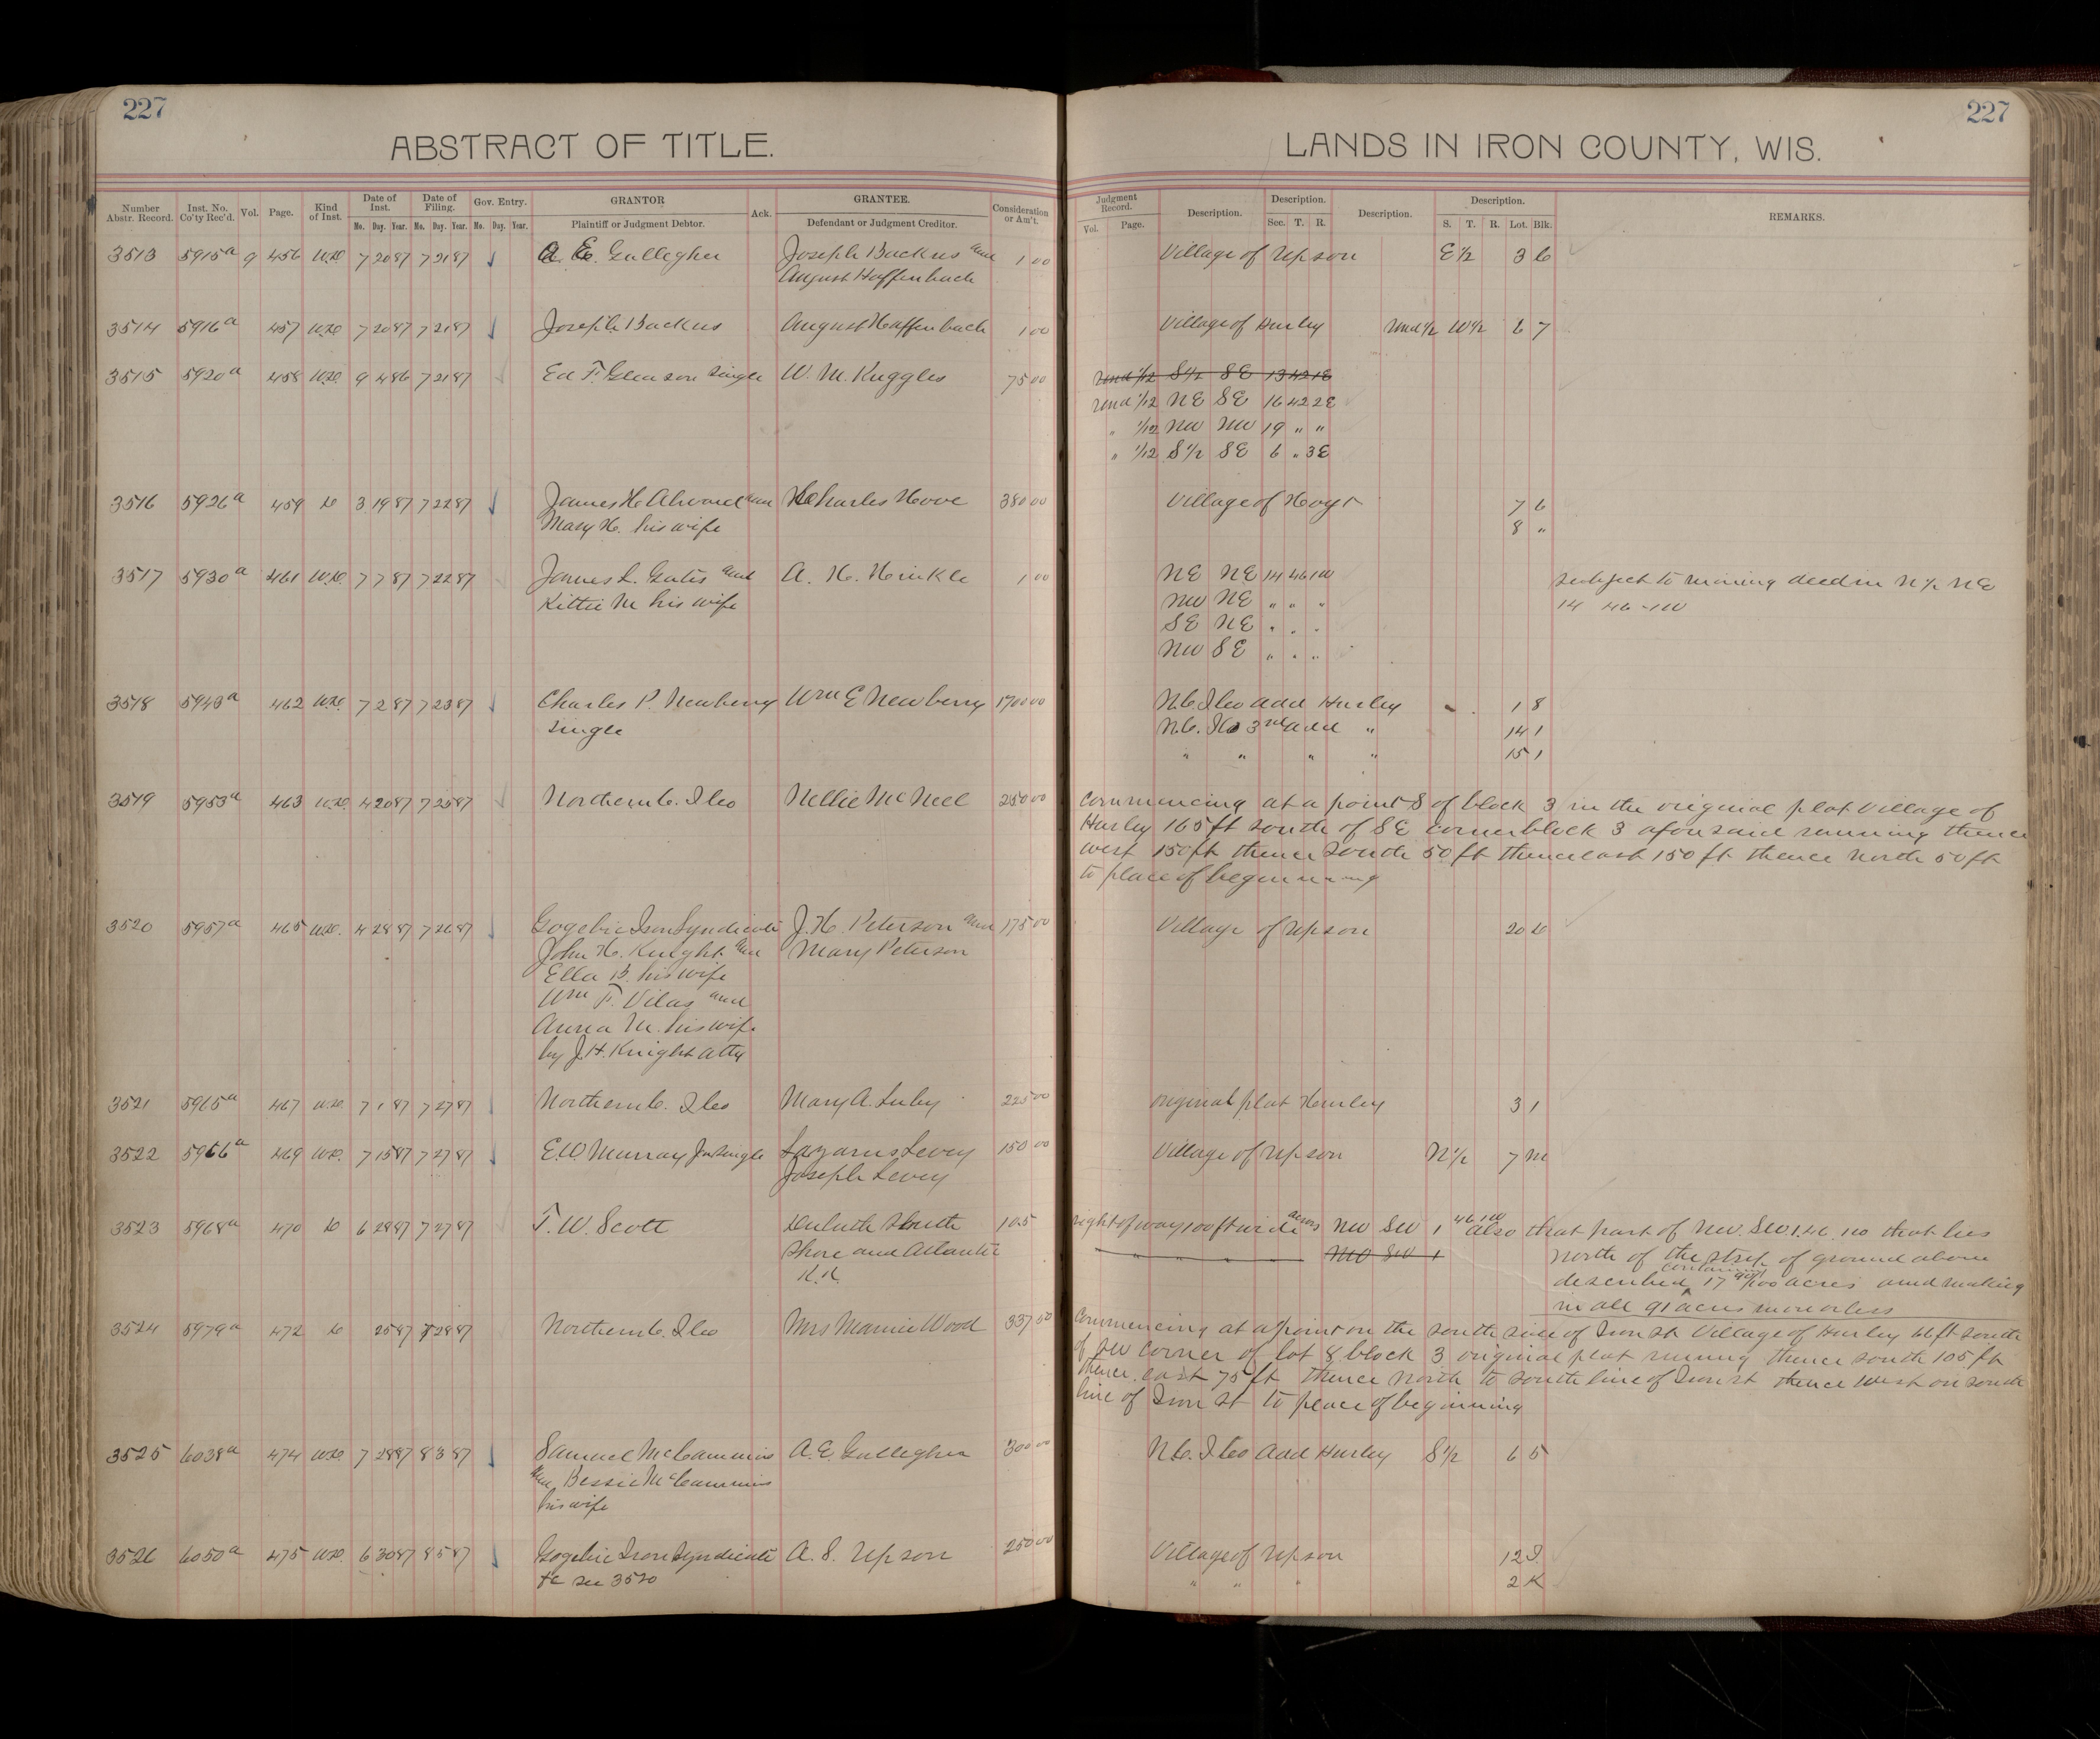 227
227
ABSTRACT OF TITLE.
LANDS IN IRON COUNTY, WIS.
Number Abstr. Record. Inst. No. Co'ty Rec'd. Vol. Page. Kind of Inst. Date of Inst. Mo. Day. Year. Date of Filing. Mo. Day. Year. Gov. Entry. Mo. Day. Year. GRANTOR Plaintiff or Judgment Debtor. Ack. GRANTEE. Defendant or Judgment Creditor. Consideration or Am't.
Judgment Record. Vol. Page. Description. Description. Sec. T. R. Description. Description. S. T. R. Lot. Blk. REMARKS.
3513 5915a 9 456 W.D. 7 20 87 7 21 87 A. E. Gullegher Joseph Backus and 1 00 Village of Upson E 1/2 3 6
August Haffenbach
3514 5916a 457 W.D. 7 20 87 7 21 87 Joseph Backus August Haffenbach 1 00 Village of Hurley und 1/2 W 1/2 6 7
3515 5920a 458 W.D. 9 4 86 7 21 87 Ed F. Gleason single W. M. Ruggles 75 00 und 1/12 S 1/2 SE 13 42 1E
und 1/12 NE SE 16 42 2E
" 1/12 NW NW 19 " "
" 1/12 S 1/2 SE 6 " 3E
3516 5926a 459 D 3 19 87 7 22 87 James H. and Charles 380 00 Village of Hoyt 7 6
Mary H. his wife 8 "
3517 5930a 461 W.D. 7 7 87 7 22 87 James L. Gates and A. H. Hinkle 1 00 NE NE 14 46 1W subject to mining deed in N 1/2 NE
Kittie M his wife NW NE " " " 14 46 - 1W
SE NE " " "
NW SE " " "
3518 5943a 462 W.D. 7 2 87 7 23 87 Charles P. Newberry Wm E Newberry 1700 00 N.C. I Co add Hurley 1 8
single N.C. I Co 3rd add " 14 1
" " " " 15 1
3519 5953a 463 W.D. 4 20 87 7 25 87 Northern C. I Co Nellie McNeel 250 00 commencing at a point S of block 3 in the original plat village of
Hurley 165 ft south of SE corner block 3 aforesaid running thence
west 150 ft thence south 50 ft thence east 150 ft thence north 50 ft
to place of beginning
3520 5957a 465 W.D. 4 28 87 7 26 87 Gogebic Iron Syndicate J. H. Peterson and 175 00 Village of Upson 20 6
John H. Knight and Mary Peterson
Ella B. his wife
Wm F. Vilas and
Anna M. his wife
by J. H. Knight atty
3521 5965a 467 W.D. 7 1 87 7 27 87 Northern C. I Co Mary A. Luby 225 00 original plat Hurley 3 1
3522 5966a 469 W.D. 7 15 87 7 27 87 E. W. Murray Jr single Lazarus Levey 150 00 Village of Upson N 1/2 7 M
Joseph Levey
3523 5968a 470 D 6 28 87 7 27 87 T. W. Scott Duluth South 105 right of way 100 ft wide across NW SW 1 46 1W also that part of NW. SW. 1. 46. 1W that lies
Shore and Atlantic " " " " NW SW 1 north of the strip of ground above
R.R. described containing 17 acres and making
in all 91 acres more or less
3524 5979a 472 D 25 87 7 28 87 Northern C. I Co Mrs Mamie Wood 337 50 Commencing at a point on the south side of Iron St Village of Hurley 66 ft south
of SW corner of lot 8 block 3 original plat running thence south 105 ft
thence east 75 ft thence north to south line of Iron st thence West on south
line of Iron st to place of beginning
3525 6038a 474 W.D. 7 28 87 8 3 87 Samuel McCammins A. E. Gullegher 300 00 N.C. I Co Add Hurley S 1/2 6 5
and Bessie McCammins
his wife
3526 6050a 475 W.D. 6 30 87 8 5 87 Gogebic Iron Syndicate A. S. Upson 250 00 Village of Upson 12 I
&c see 3520 " " " 2 K